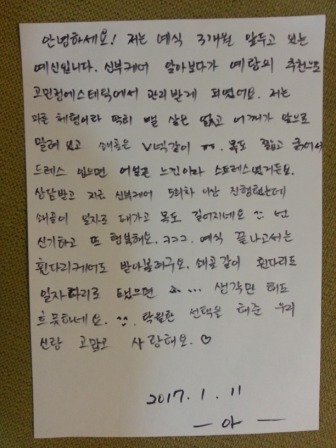 안녕하세요! 저는 예식 3개월 앞두고 있는
예신입니다. 신부케어 알아보다가 예랑의 추천으로
고민정에스테틱에서 관리받게 되었어요. 저는
마른 체형이라 딱히 뺄 살은 없고 어깨가 앞으로
말려 있고 쇄골은 V넥같이 ㅠ. 목도 짧고 굵어서
드레스 입으면 어설픈 느낌이라 스트레스였거든요.
상담받고 지금 신부케어 5회차 나만 진행했는데
쇄골이 일자로 돼가고 목도 길어지네요 ^^ 넘
신기하고 또 행복해요. ㅋㅋㅋ. 예식 끝나고서는
휜다리케어도 받아볼려구요. 쇄골같이 휜다리도
일자다리로 된다면 ... 생각만 해도
흐뭇하네요. ^^. 탁월한 선택을 해준 우리
신랑 고맙고 사랑해요. ♡
2017. 1. 11